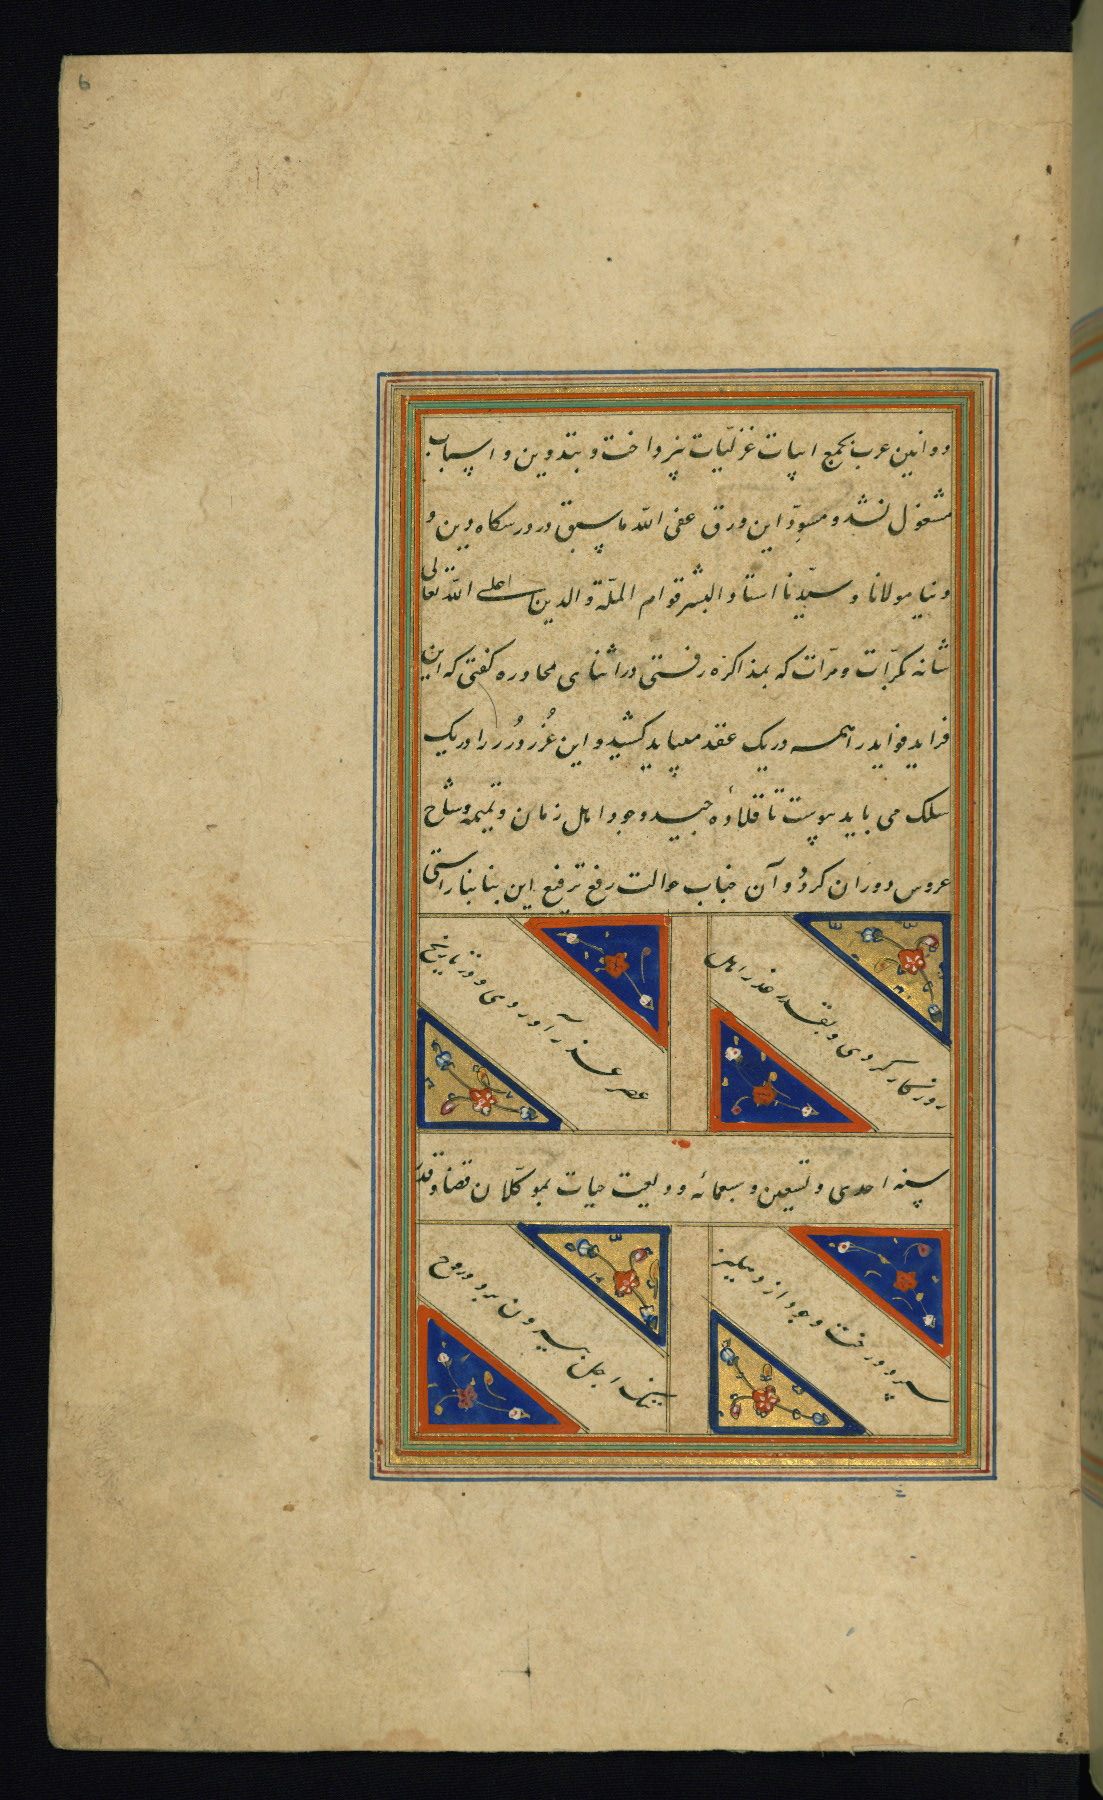 6
دواوین عرب بجمع ابیات غزلیات نپرداخت و بتدوین و اسباب
مشغول نشد و مسوّد این ورق عفی الله ما سبق در درسکاه دین و
دنیا مولانا و سیّدنا استاد البشر قوام الملّة و الدین اعلی الله تعالی
شانه بکرّات و مرّات که بمذاکره رفتی در اثنای محاوره کفتی که این
فراید فواید را همه در یک عقد میباید کشید و این غُرر دُرر را در یک
سلک می باید پیوست تا قلادهٔ جید وجود اهل زمان و تمیمهٔ وشاح
عروس دوران کردد و آن جناب حوالت رفع ترفیع این بنا بنا راستی
روزکار کردی و بغدر غدر اهل
عصر عذر آوردی و در تاریخ
سنه احدی و تسعین و سبعمائه ودیعت حیات بموکّلان قضا و قدر
سپرد و رخت وجود از دهلیز
تنک اجل بیرون برد و روح